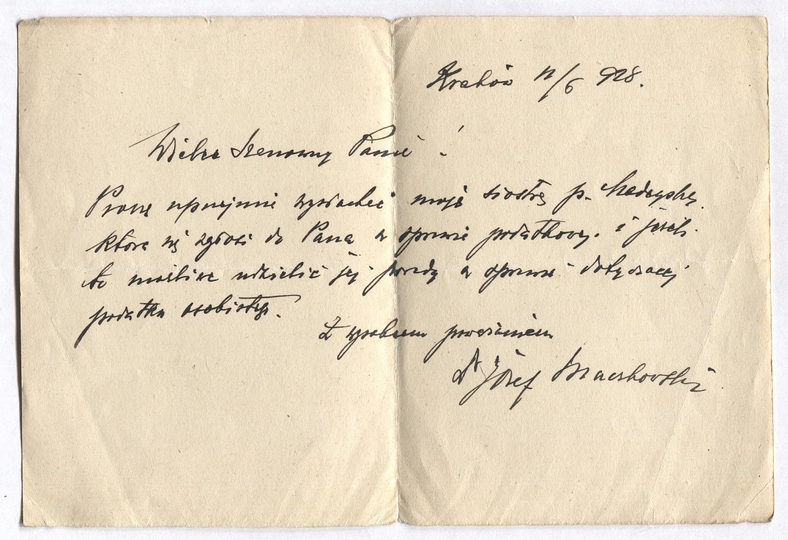 Kraków 11/6 928.
Wielce Szanowny Panie!
Proszę uprzejmie wysłuchać moją siostrę p.
która się zgłosi do Pana w sprawie podatkowej. i jeśli
to możliwe udzielić jej porady w sprawie dotyczącej
podatku osobistego.
Z wysokiem poważaniem
Dr Józef